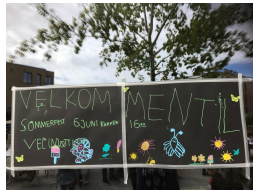 VELKOMMEN TIL
SOMMERFEST 6 JUNI KLOKKEN 16
VEL(MØTT)